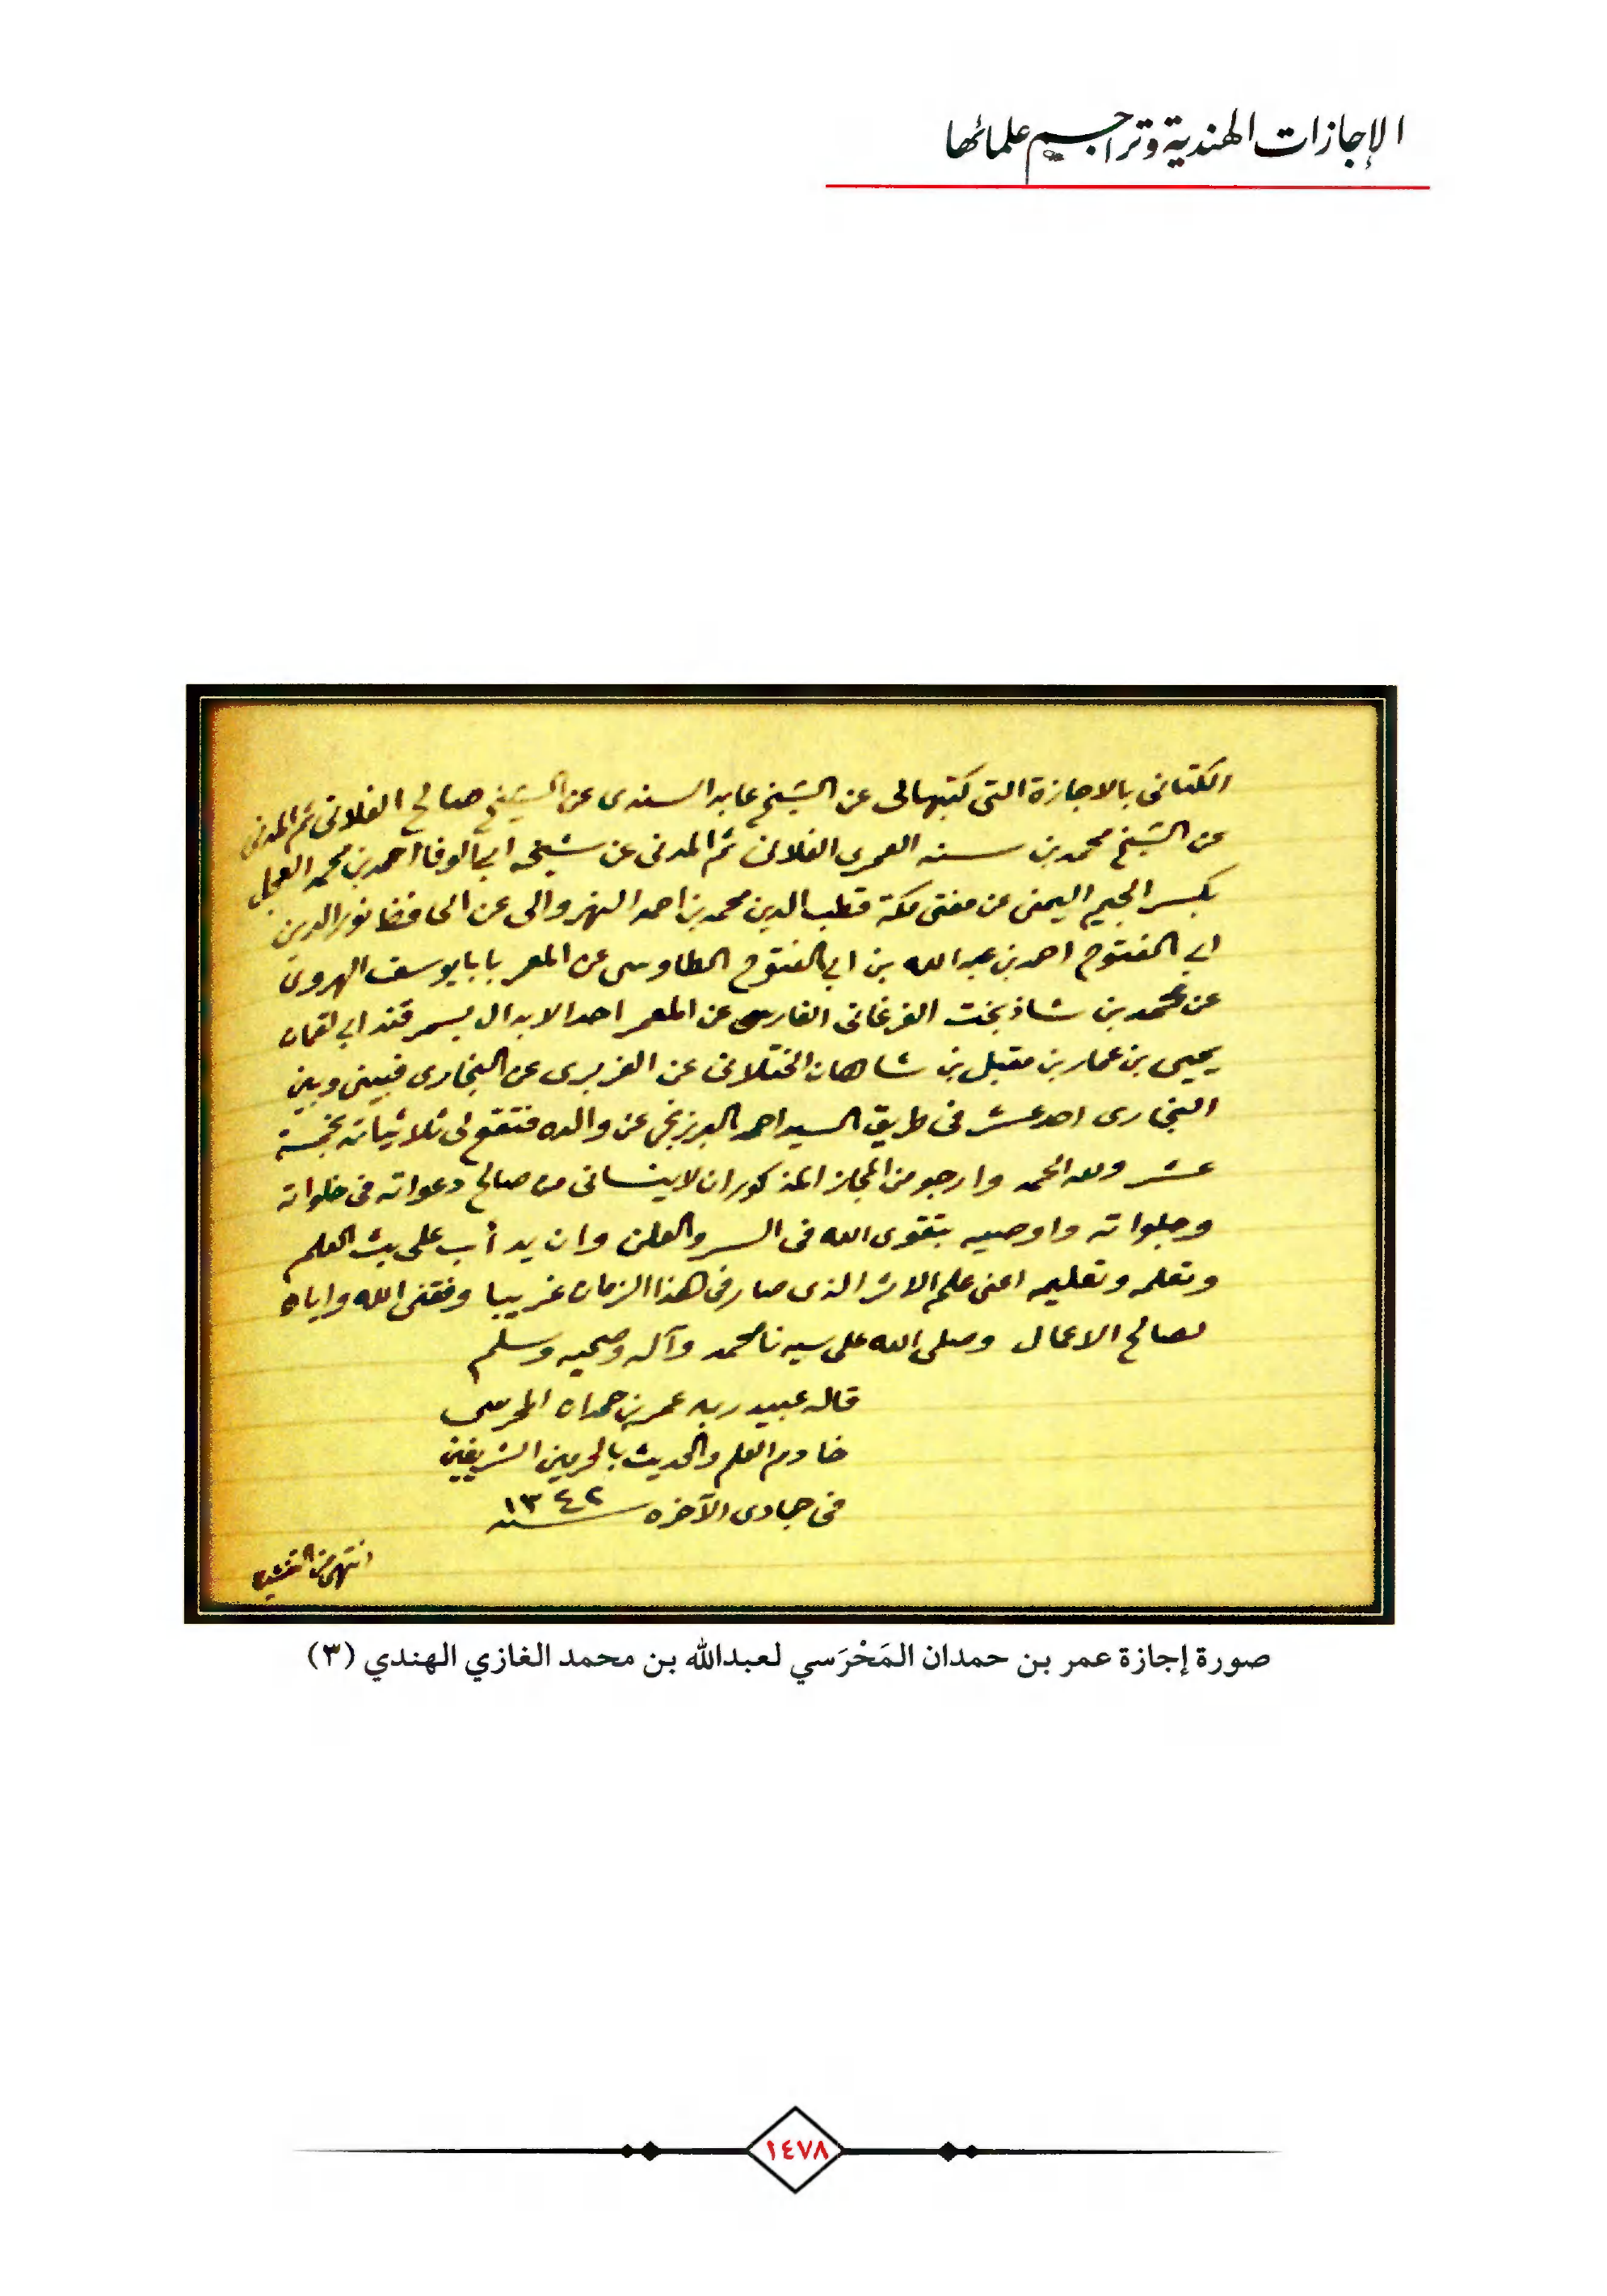 الإجازات الهندية وتراجم علمائها
الكتانى بالاجازة التى كتبها لى عن الشيخ عابد السندى عن الشيخ صالح الفلانى ثم المدنى
عن الشيخ محمد بن سنه العمرى الفلانى ثم المدنى عن شيخه ابى الوفا احمد بن محمد العجل
بكسر الجيم اليمنى عن مفتى مكة قطب الدين محمد بن احمد النهروالى عن الحافظ نور الدين
ابى الفتوح احمد بن عبد الله بن ابى الفتوح الطاوسى عن المعمر بابا يوسف الهروى
عن محمد بن شاذ بخت الفرغانى الفارسى عن المعمر احد الابدال بسمرقند ابى لقمان
يحيى بن عمار بن مقبل بن شاهان الختلانى عن الفربرى عن البخارى فبينى وبين
البخارى احد عشر فى طريق السيد احمد البرزنجى عن والده فتقع لى ثلاثياته بخمسة
عشر ولله الحمد وارجو من المجاز المذكور ان لا ينسانى من صالح دعواته فى خلواته
وجلواته واوصيه بتقوى الله فى السر والعلن وان يدأب على بث العلم
وتعلمه وتعليمه اعنى علم الاثر الذى صار فى هذا الزمان غريبا وفقنى الله واياه
لصالح الاعمال وصلى الله على سيدنا محمد وآله وصحبه وسلم
قاله عبيد ربه عمر بن حمدان المحرسى
خادم العلم والحديث بالحرمين الشريفين
فى جمادى الآخره سنه ١٣٤٢
انتهى من
صورة إجازة عمر بن حمدان المَحْرَسي لعبدالله بن محمد الغازي الهندي (٣)
١٤٧٨